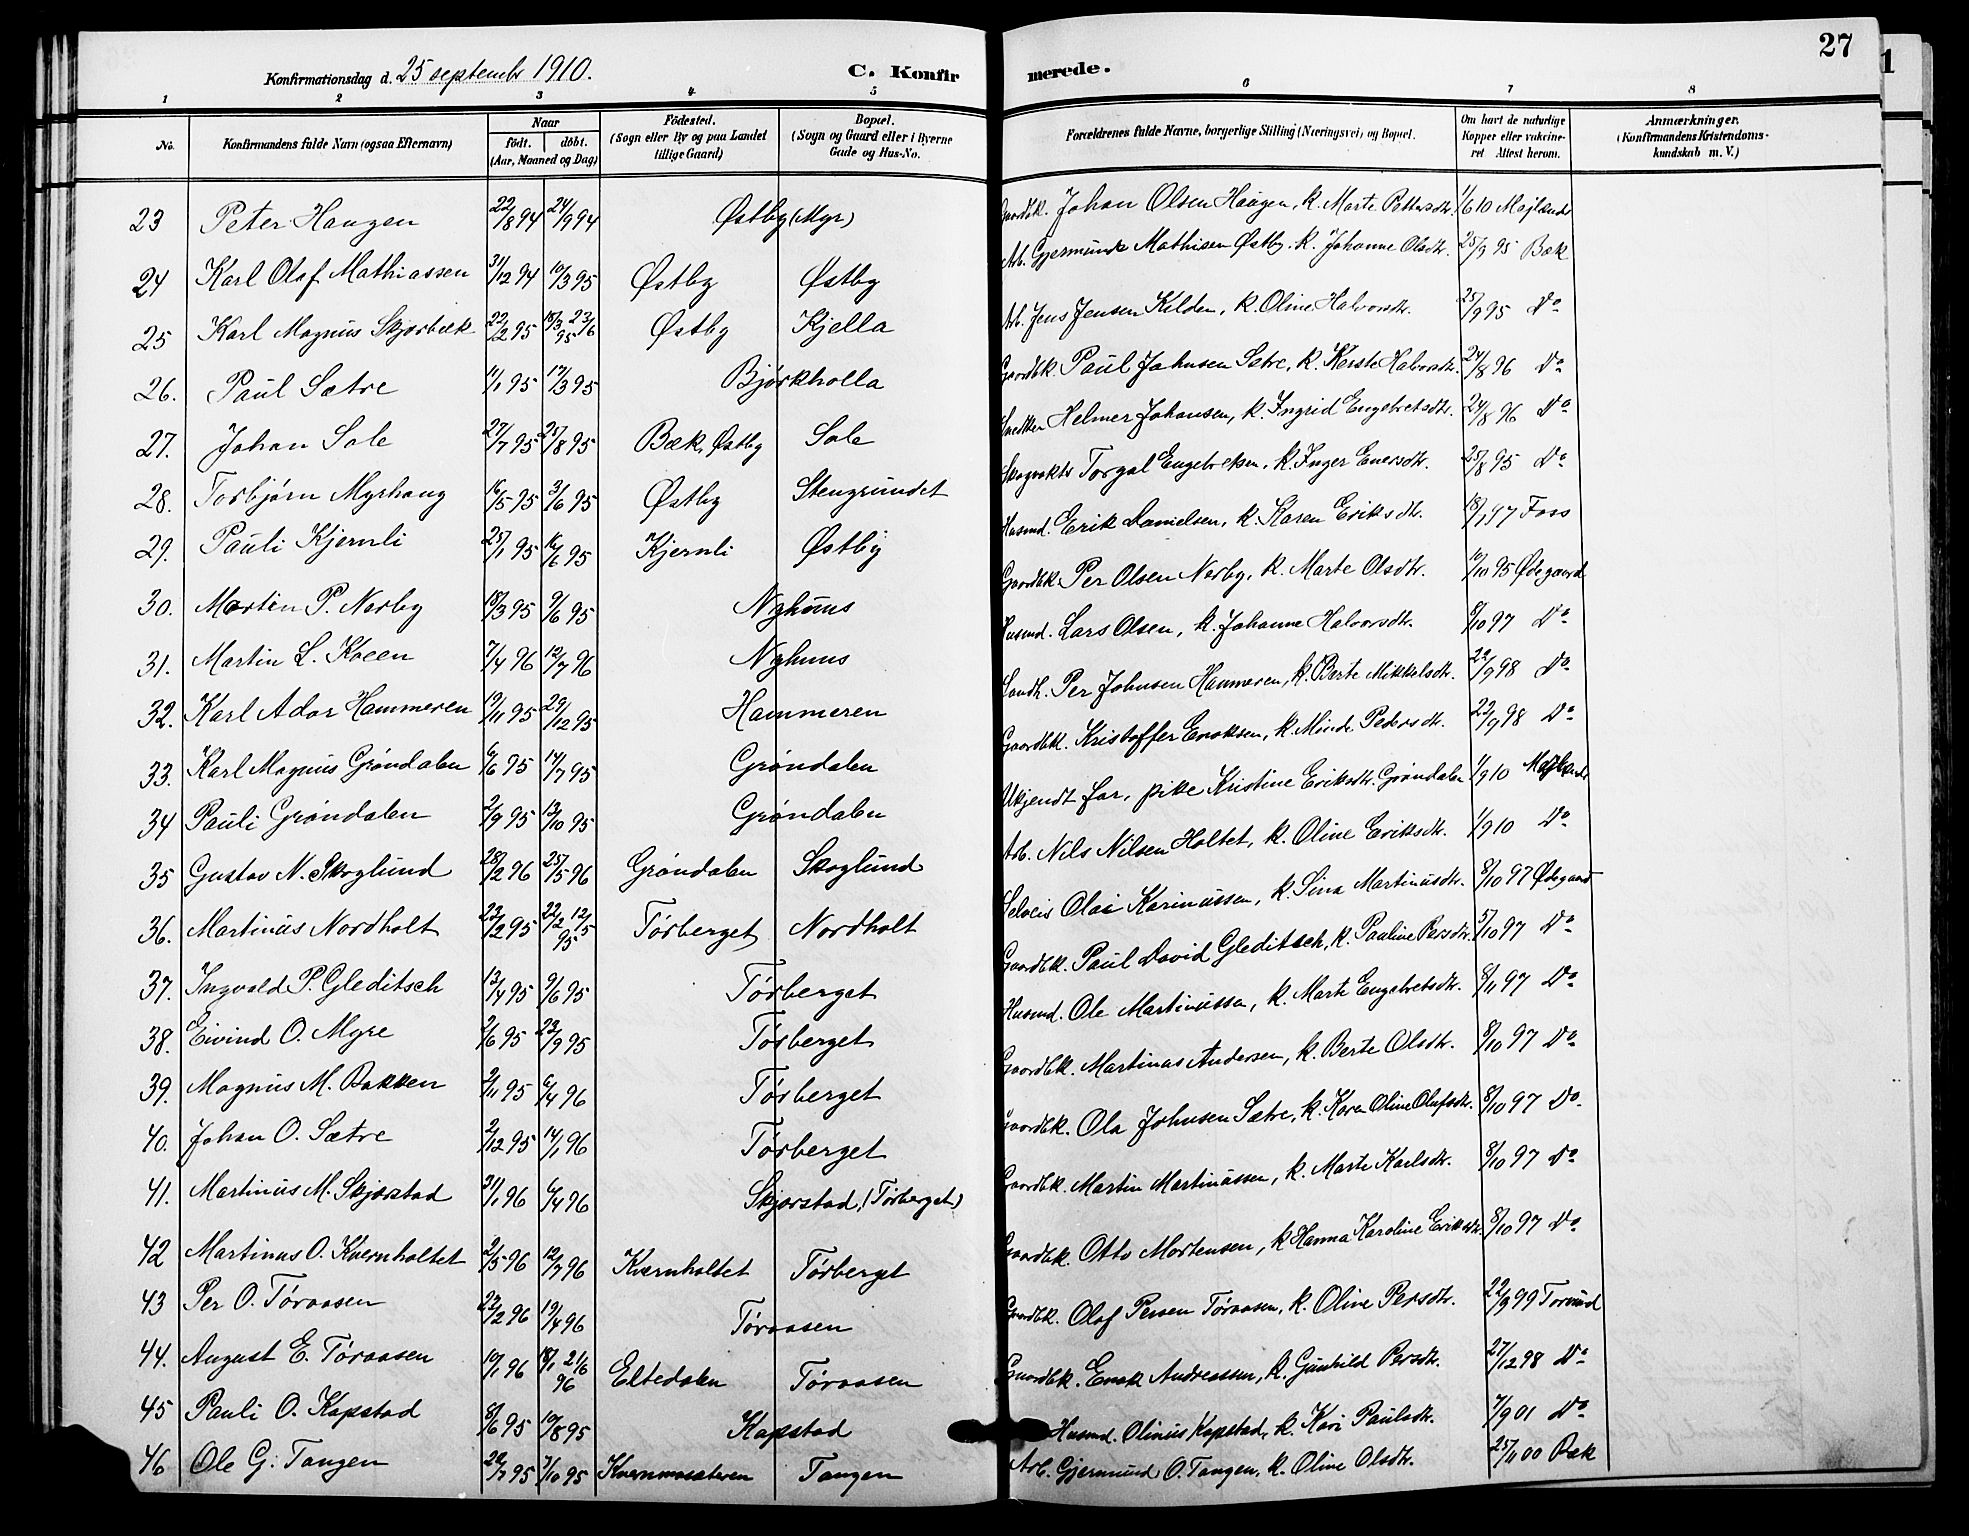 27
Konfirmationsdag d. 25 septembr 1910. C. Konfirmerede.
1 2 3 4 5 6 7 8
No. Konfirmandens fulde Navn (ogsaa Efternavn) Naar født. døbt. (Aar, Maaned og Dag) Födested. (Sogn eller By og paa Landet tillige Gaard) Bopæl. (Sogn og Gaard eller i Byerne Gade og Hus-No. Forældrenes fulde Navne, borgerlige Stilling (Næringsvei) og Bopæl. Om havt de naturlige Kopper eller vakcineret Attest herom. Anmærkninger. (Konfirmandens Kristendomskundskab m. V.)
23 Peter Haugen 22/8 94 24/9 94 Østby (Myr) Gaardbk. Johan Olsen Haugen, k. Marte Pettersdtr. 1/6 10 Mejlænder
24 Karl Olaf Mathiassen 31/12 94 10/3 95 Østby Østby Arb. Gjermund Mathisen Østby. k. Johanne Olsdtr. 25/9 95 Bæk
25 Karl Magnus Skjærbæk 22/2 95 18/3 23/6 95 Østby Kjella Arb. Jens Jensen Kilden, k. Oline Halvorsdtr. 25/9 95 Do
26. Paul Sætre 11/1 95 17/3 95 Bjørkholla Gaardbk. Paul Johnsen Sætre, k. Kerste Halvorsdtr. 24/8 96 Do
27. Johan Sole 27/7 95 25/8 95 Bæk, Østby Sole Snedker Helmer Johansen, k. Ingrid Engebretsdtr. 24/8 96 Do
28. Torbjørn Myrhaug 16/5 95 3/6 95 Østby Stengrundet Skogvakter Torgal Engebretsen, k. Inger Enersdtr. 25/8 95 Do
29. Pauli Kjernli 25/1 95 16/6 95 Kjernli Østby Husmd. Erik Danielsen, k. Karen Eriksdtr. 18/1 97 Foss
30. Martin P. Nerby 18/3 95 9/6 95 Nyhuus Gaardbk. Per Olsen Nerby, k. Marte Olsdtr. 10/10 95 Ødegaard
31. Martin L. Kveen 7/4 96 12/7 96 Nyhuus Husmd. Lars Olsen, k. Johanne Halvorsdtr. 8/10 97 Do
32. Karl Ador Hammeren 19/11 95 29/12 95 Hammeren Landh. Per Johnsen Hammeren, k. Berte Mikkelsdtr. 22/9 98 Do
33. Karl Magnus Grøndalen 6/6 95 14/7 95 Grøndalen Gaardbk. Kristoffer Enoksen, k. Minda Pedersdtr. 22/9 98 Do
34 Pauli Grøndalen 2/9 95 13/10 95 Grøndalen Ukjendt far, pike Kristine Eriksdtr. Grøndalen 1/9 10 Mejlænder
35 Gustav N. Skoglund 28/2 96 25/5 96 Grøndalen Skoglund Arb. Nils Nilsen Holtet, k. Oline Eriksdtr. 1/9 10 Do
36. Martinus Nordholt 23/2 95 22/2 12/5 95 Tørberget Nordholt Selveier Olai Karinussen, k. Sina Martinusdtr. 8/10 97 Ødegaard
37. Ingvald P. Gleditsch 13/4 95 9/6 95 Tørberget Gaardbk. Paul David Gleditsch, k. Pauline Persdtr. 5/10 97 Do
38. Eivind O. Myre 2/6 95 23/9 95 Tørberget Husmd. Ole Martinussen, k. Marte Engebretsdtr. 8/11 97 Do
39. Magnus M. Bakken 2/11 95 6/4 96 Tørberget Gaardbk. Martinus Andersen, k. Berte Olsdtr. 8/10 97 Do
40. Johan O. Sætre 2/12 95 14/1 96 Tørberget Gaardbk. Ola Johnsen Sætre, k. Karen Oline Olufsdtr. 8/10 97 Do.
41. Martinus M. Skjærstad 31/1 96 6/4 96 Skjærstad, (Tørberget) Gaardbk. Martin Martinussen, k. Marte Karlsdtr. 8/10 97 Do
42 Martinus O. Kvernholtet 2/5 96 12/7 96 Kvernholtet Tørberget Gaardbk. Otto Mortensen, k Hanna Karoline Eriksdtr. 8/10 97 Do
43 Per O. Tøraasen 23/2 96 19/4 96 Tøraasen Gaardbk. Olof Persen Tøraasen, k. Oline Persdtr. 22/9 99 Torsund
44. August E. Tøraasen 10/1 96 18/1 21/6 96 Eltedalen Tøraasen Gaardbk. Enok Andreassen, k. Gunhild Persdtr. 27/12 98 Do
45 Pauli O. Kapstad 8/6 95 10/8 95 Kapstad Husmd. Olinus Kapstad, k. Kari Paulsdtr. 7/9 01 Do
46 Ole G. Tangen 22/7 95 7/10 95 Kvernmosæteren Tangen Arb. Gjermund O. Tangen, k. Oline Olsdtr. 25/11 00 Bæk